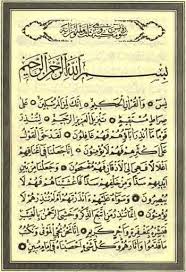 بِسْمِ اللهِ الرَّحْمٰنِ الرَّحِيمِ
يٰسٓ ۝ وَالْقُرْاٰنِ الْحَكِيمِ ۝ اِنَّكَ لَمِنَ الْمُرْسَلِينَ ۝ عَلٰى
صِرَاطٍ مُسْتَقِيمٍ ۝ تَنْزِيلَ الْعَزِيزِ الرَّحِيمِ ۝ لِتُنْذِرَ
قَوْمًا مَا اُنْذِرَ اٰبَاؤُهُمْ فَهُمْ غَافِلُونَ ۝ لَقَدْ حَقَّ الْقَوْلُ
عَلٰى اَكْثَرِهِمْ فَهُمْ لَا يُؤْمِنُونَ ۝ اِنَّا جَعَلْنَا فِي اَعْنَاقِهِمْ
اَغْلَالًا فَهِيَ اِلَى الْاَذْقَانِ فَهُمْ مُقْمَحُونَ ۝ وَجَعَلْنَا مِنْ بَيْنِ
اَيْدِيهِمْ سَدًّا وَمِنْ خَلْفِهِمْ سَدًّا فَاَغْشَيْنَاهُمْ فَهُمْ لَا يُبْصِرُونَ
وَسَوَاءٌ عَلَيْهِمْ ءَاَنْذَرْتَهُمْ اَمْ لَمْ تُنْذِرْهُمْ لَا يُؤْمِنُونَ ۝
اِنَّمَا تُنْذِرُ مَنِ اتَّبَعَ الذِّكْرَ وَخَشِيَ الرَّحْمٰنَ بِالْغَيْبِ فَبَشِّرْهُ
بِمَغْفِرَةٍ وَاَجْرٍ كَرِيمٍ ۝ اِنَّا نَحْنُ نُحْيِ الْمَوْتٰى وَنَكْتُبُ
مَا قَدَّمُوا وَاٰثَارَهُمْ وَكُلَّ شَيْءٍ اَحْصَيْنَاهُ فِي اِمَامٍ مُبِينٍ ۝